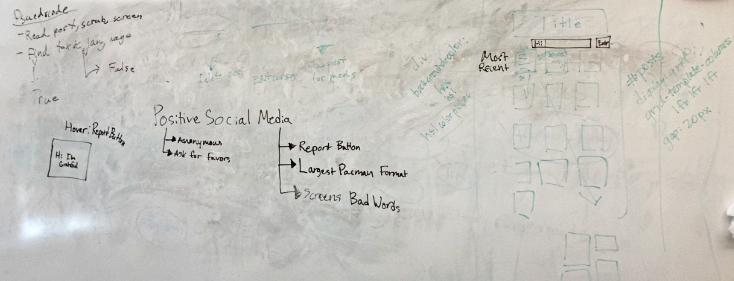 - Read post, scrub, screen
- Find toxic language
False
True
Hover: Report Button
Hi I'm
Positive Social Media
Anonymous
Ask for favors
Report Button
Largest Pacman Format
Screens Bad Words
Title
Hi
Most
Recent
div
background-color:
hsl
hsl color picker
#posts
display: grid;
grid-template-columns:
1fr 1fr 1fr
gap: 20px